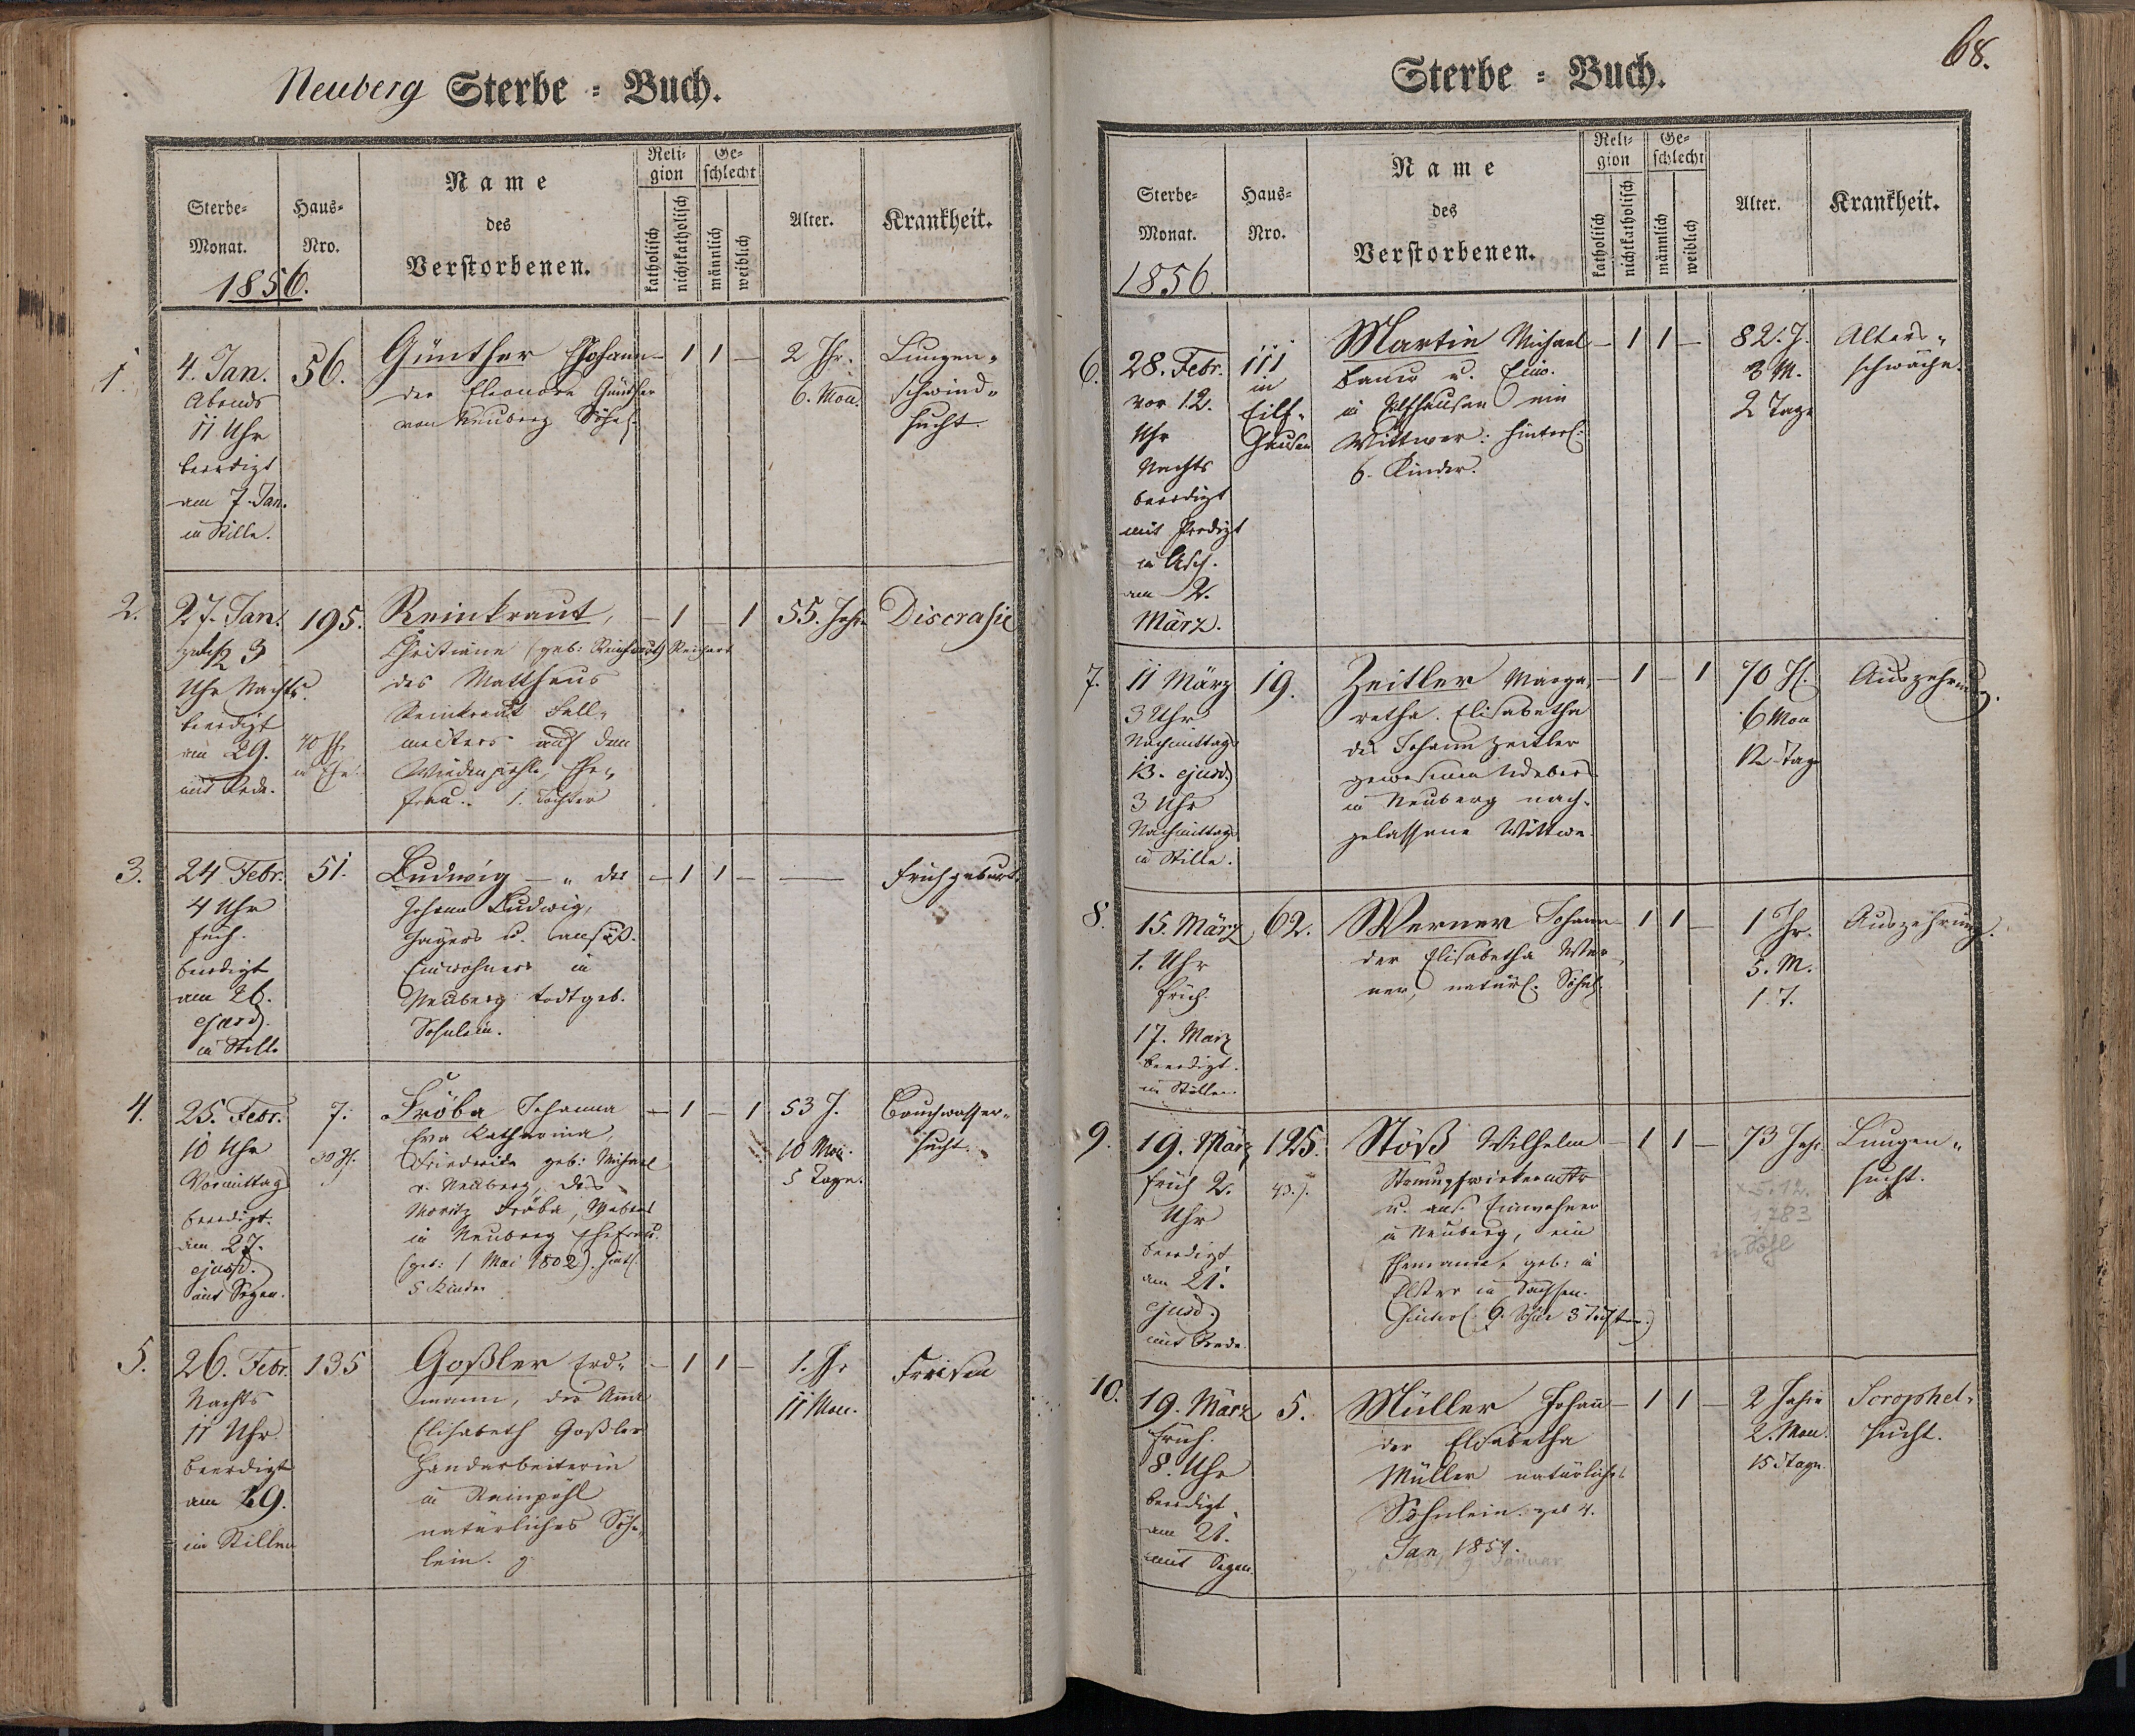 Neuberg Sterbe = Buch.
Sterbe-
Monat.
1856.
Haus-
Nro.
Name
des
Verstorbenen.
Reli-
gion
katholisch
nichtkatholisch
Ge-
schlecht
männlich
weiblich
Alter.
Krankheit.
1.
4. Jan.
Abends
11 Uhr
beerdigt
am 7. Jan.
in Stille.
56.
Günther Johann
der Eleonore Günther
von Neuberg Söhnl.
— 1 1 —
2 Jhr.
6. Mon.
Lungen-
schwind-
sucht.
2.
27. Jan.
1/2 3
Uhr Nachts.
beerdigt
am 29.
mit Rede.
195.
40 Jh.
in Ehe.
Reinkraut,
Christiane (geb: Reichert
des Matthäus
Reinkraut Fall-
meisters auf dem
Ehe-
frau. 1. Tochter
— 1 — 1
55. Jahr
Discrasie
3.
24 Febr.
4 Uhr
früh.
beerdigt
am 26.
ejusd.
in Stille
51.
Ludwig — " des
Johann Ludwig,
u. ansäß.
Einwohners in
Neuberg todtgeb.
Söhnlein.
— 1 1 —
—
Frühgeburt.
4.
25. Febr.
10 Uhr
Vormittag
beerdigt.
am 27.
ejusd.
mit Segen.
7.
30 J.
Fröba Johanna
Eva Katharina,
Friederike geb: Michael
v. Neuberg, des
Moritz Fröba, Webers
in Neuberg Ehefrau.
(geb: 1 Mai 1802). hintl.
5 Kinder
— 1 — 1
53 J.
10 Mon.
5 Tage.
Bauchwasser-
sucht.
5.
26. Febr.
Nachts
11 Uhr
beerdigt
am 29.
im Stillen
135
Goßler Erd-
mann, der Anna
Elisabeth Goßler
Handarbeiterin
in
natürliches Söhn-
lein.
— 1 1 —
1. Jhr
11 Mon.
Freisen
68.
Sterbe = Buch.
Sterbe-
Monat.
1856.
Haus-
Nro.
Name
des
Verstorbenen.
Reli-
gion
katholisch
nichtkatholisch
Ge-
schlecht
männlich
weiblich
Alter.
Krankheit.
6.
28. Febr.
vor 12.
Uhr
Nachts
beerdigt
mit Predigt
in Asch.
am 2.
März.
111
in
Eilf-
hausen
Martin Michael
Bauer u. Einw.
in Eilfhausen ein
Wittwer: hinterl:
6. Kinder.
— 1 1 —
82. J.
3 M.
2 Tage
Alters-
schwäche.
7.
11 März
3 Uhr
Nachmittag
13. ejusd.
3 Uhr
Nachmittag
in Stille.
19.
Zeitler Marga-
retha. Elisabetha
des Johann Zeitler
gewesenen Webers
in Neuberg nach-
gelassene Wittwe
— 1 — 1
70 J.
6 Mon
12 Tag
Auszehrung.
8.
15. März
1. Uhr
früh.
17. März
beerdigt.
in Stillen.
62.
Werner Johann
der Elisabetha Wer-
ner, natürl. Söhnl.
— 1 1 —
1 Jhr.
5. M.
1. T.
Auszehrung.
9.
19. März
früh 2.
Uhr
beerdigt
am 21.
ejusd.
mit Rede.
125.
43. J.
Stöß Wilhelm
Strumpfwirkermstr
u. ans. Einwohner
in Neuberg, ein
Ehemann, geb: in
Elster in Sachsen.
(hinterl. 6. Söhne 3 Töchter.)
— 1 1 —
73 Jahr
× 5.12.
1783
in Sohl
Lungen-
sucht.
10.
19. März
früh.
8. Uhr
beerdigt
am 21.
mit Segen.
5.
Müller Johann
der Elisabetha
Müller natürliches
Söhnlein. geb 4.
Jan. 1854.
Januar
— 1 1 —
2 Jahre
2. Mon.
15 Tage.
Scrophel-
sucht.